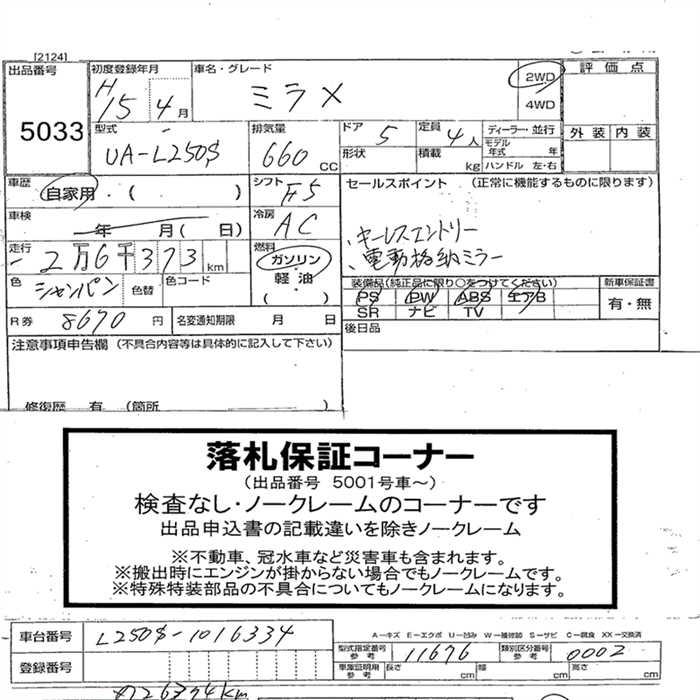 [2124]
出品番号 5033
初度登録年月 H15 4月
車名・グレード ミラ X
2WD 4WD
評価点
外装 内装
型式 UA-L250S
排気量 660 CC
ドア 5
形状
定員 4人
積載 kg
ディーラー・並行
モデル年式 年
ハンドル 左・右
車歴 自家用・( )
シフト F5
セールスポイント (正常に機能するものに限ります)
キーレスエントリー
電動格納ミラー
車検 年 月( 日)
冷房 AC
走行 2万6千373km
燃料 ガソリン・軽油・( )
色 シャンパン
色替
色コード
装備品(純正品に限り○をつけてください)
PS PW ABS エアB
SR ナビ TV
新車保証書 有・無
R券 8670円
名変通知期限 月 日
後日品
注意事項申告欄 (不具合内容等は具体的に記入して下さい)
修復歴 有 (箇所 )
落札保証コーナー
(出品番号 5001号車~)
検査なし・ノークレームのコーナーです
出品申込書の記載違いを除きノークレーム
※不動車、冠水車など災害車も含まれます。
※搬出時にエンジンが掛からない場合でもノークレームです。
※特殊特装部品の不具合についてもノークレームになります。
車台番号 L250S-1016334
登録番号
A-キズ E-エクボ U-凹み W-補修跡 S-サビ C-腐食 XX-交換済
型式指定番号参考 11676
類別区分番号参考 0002
車庫証明用参考 長さ cm 幅 cm 高さ cm